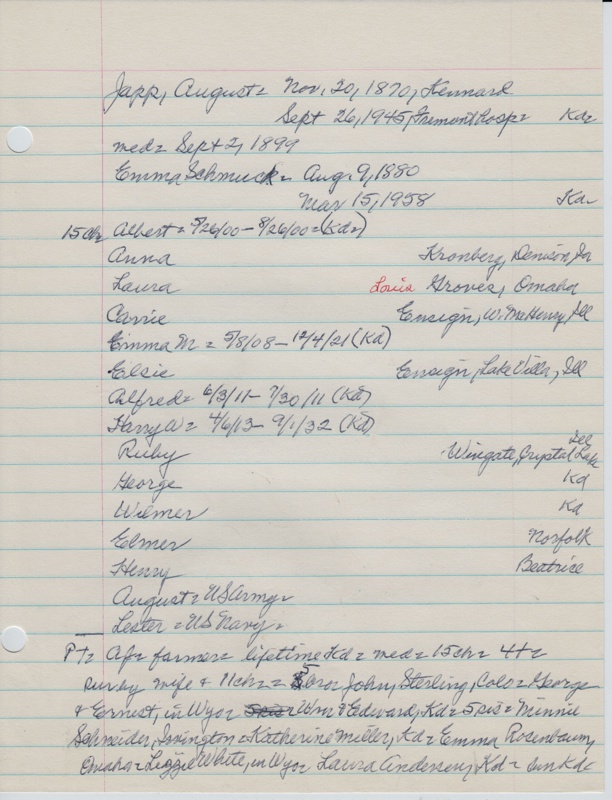 Japp, August = Nov. 20, 1870, Kennard
Sept 26, 1945, Fremont Hosp = Kd =
med = Sept 2, 1899
Emma Schmuck = Aug. 9, 1880
Mar 15, 1958 Kd =
15 ch = Albert = 5/26/00 - 8/26/00 = (Kd =)
Anna Kronberg, Denison, Ia
Laura Louis Groves, Omaha
Carrie Ensign, W. McHenry, Ill
Emma M = 5/8/08 - 12/4/21 (Kd)
Elsie Ensign, Lake Villa, Ill
Alfred = 6/3/11 - 7/30/11 (Kd)
Harry W = 4/6/13 - 9/1/32 (Kd)
Ruby Wingate, Crystal Lake Ill
George Kd
Wilmer Kd
Elmer Norfolk
Henry Beatrice
August = US Army =
Lester = US Navy =
PT = farmer = lifetime Kd = med = 15 ch = 4 H =
surv by wife & 11 ch = 5 bros John, Sterling, Colo = George
& Ernest, in Wyo = Wm & Edward, Kd = 5 sis = Minnie
Schneider, Irvington = Katherine Miller, Kd = Emma Rosenbaum,
Omaha = Lizzie White, in Wyo = Laura Andersen, Kd = bur Kd =